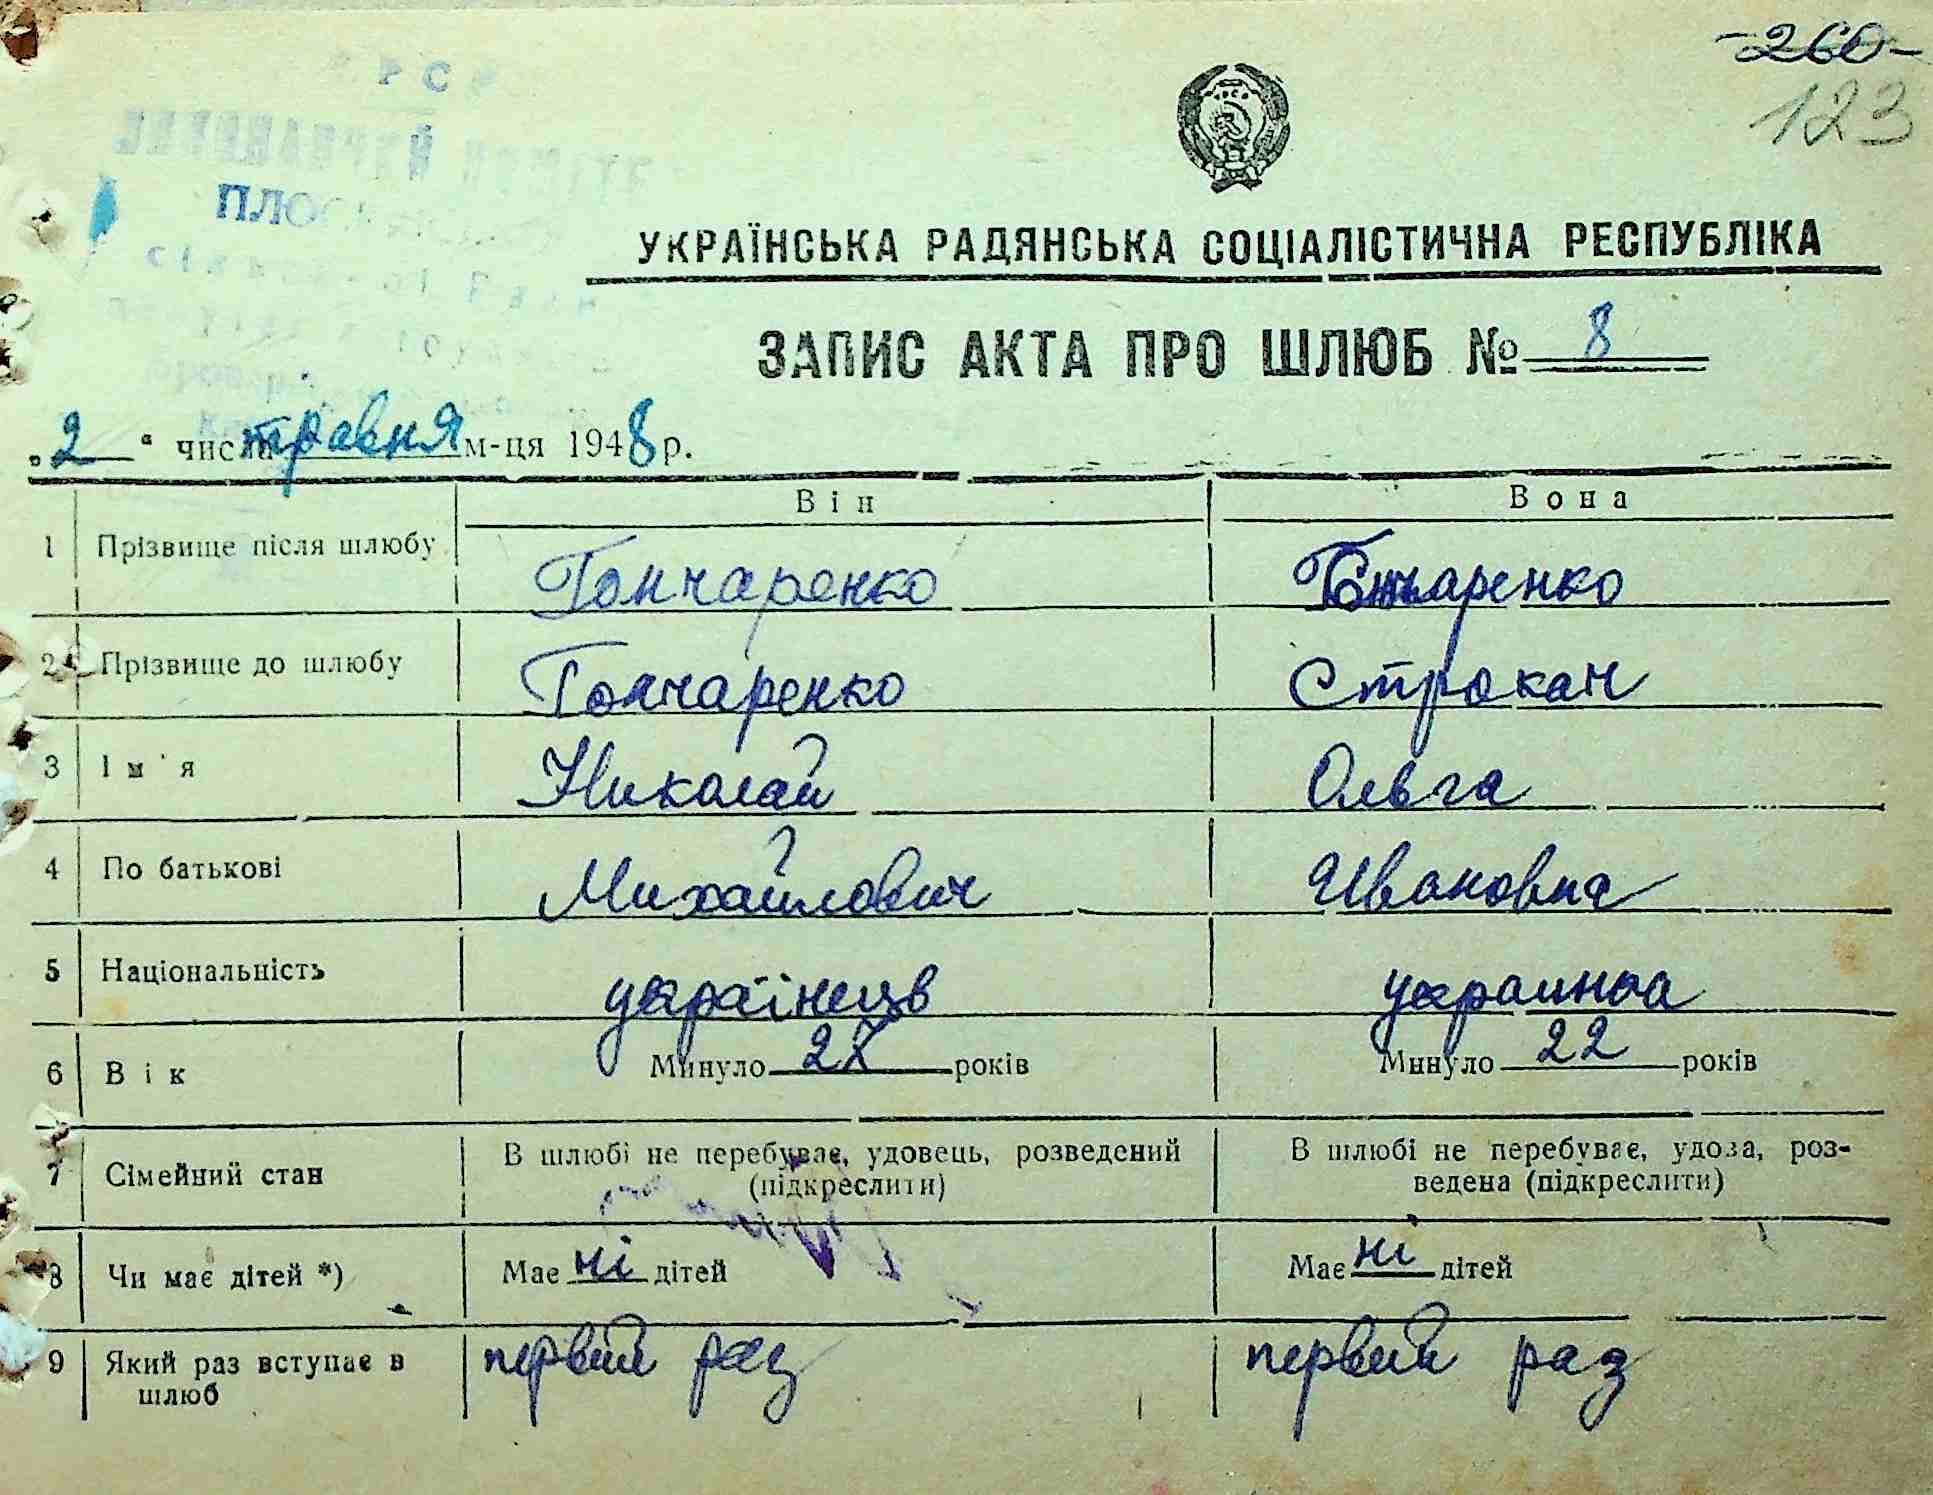 -260-
123
УКРАЇНСЬКА РАДЯНСЬКА СОЦІАЛІСТИЧНА РЕСПУБЛІКА
ЗАПИС АКТА ПРО ШЛЮБ № 8
„2“ числа травня м-ця 1948 р.
Він Вона
1 Прізвище після шлюбу Гончаренко Гончаренко
2 Прізвище до шлюбу Гончаренко Строкан
3 Ім'я Николай Ольга
4 По батькові Михайлович Ивановна
5 Національність українець украинка
6 Вік Минуло років Минуло 22 років
7 Сімейний стан В шлюбі не перебуває, удовець, розведений (підкреслити) В шлюбі не перебуває, удова, роз-
ведена (підкреслити)
8 Чи має дітей *) Має ні дітей Має ні дітей
9 Який раз вступає в шлюб первий раз первий раз